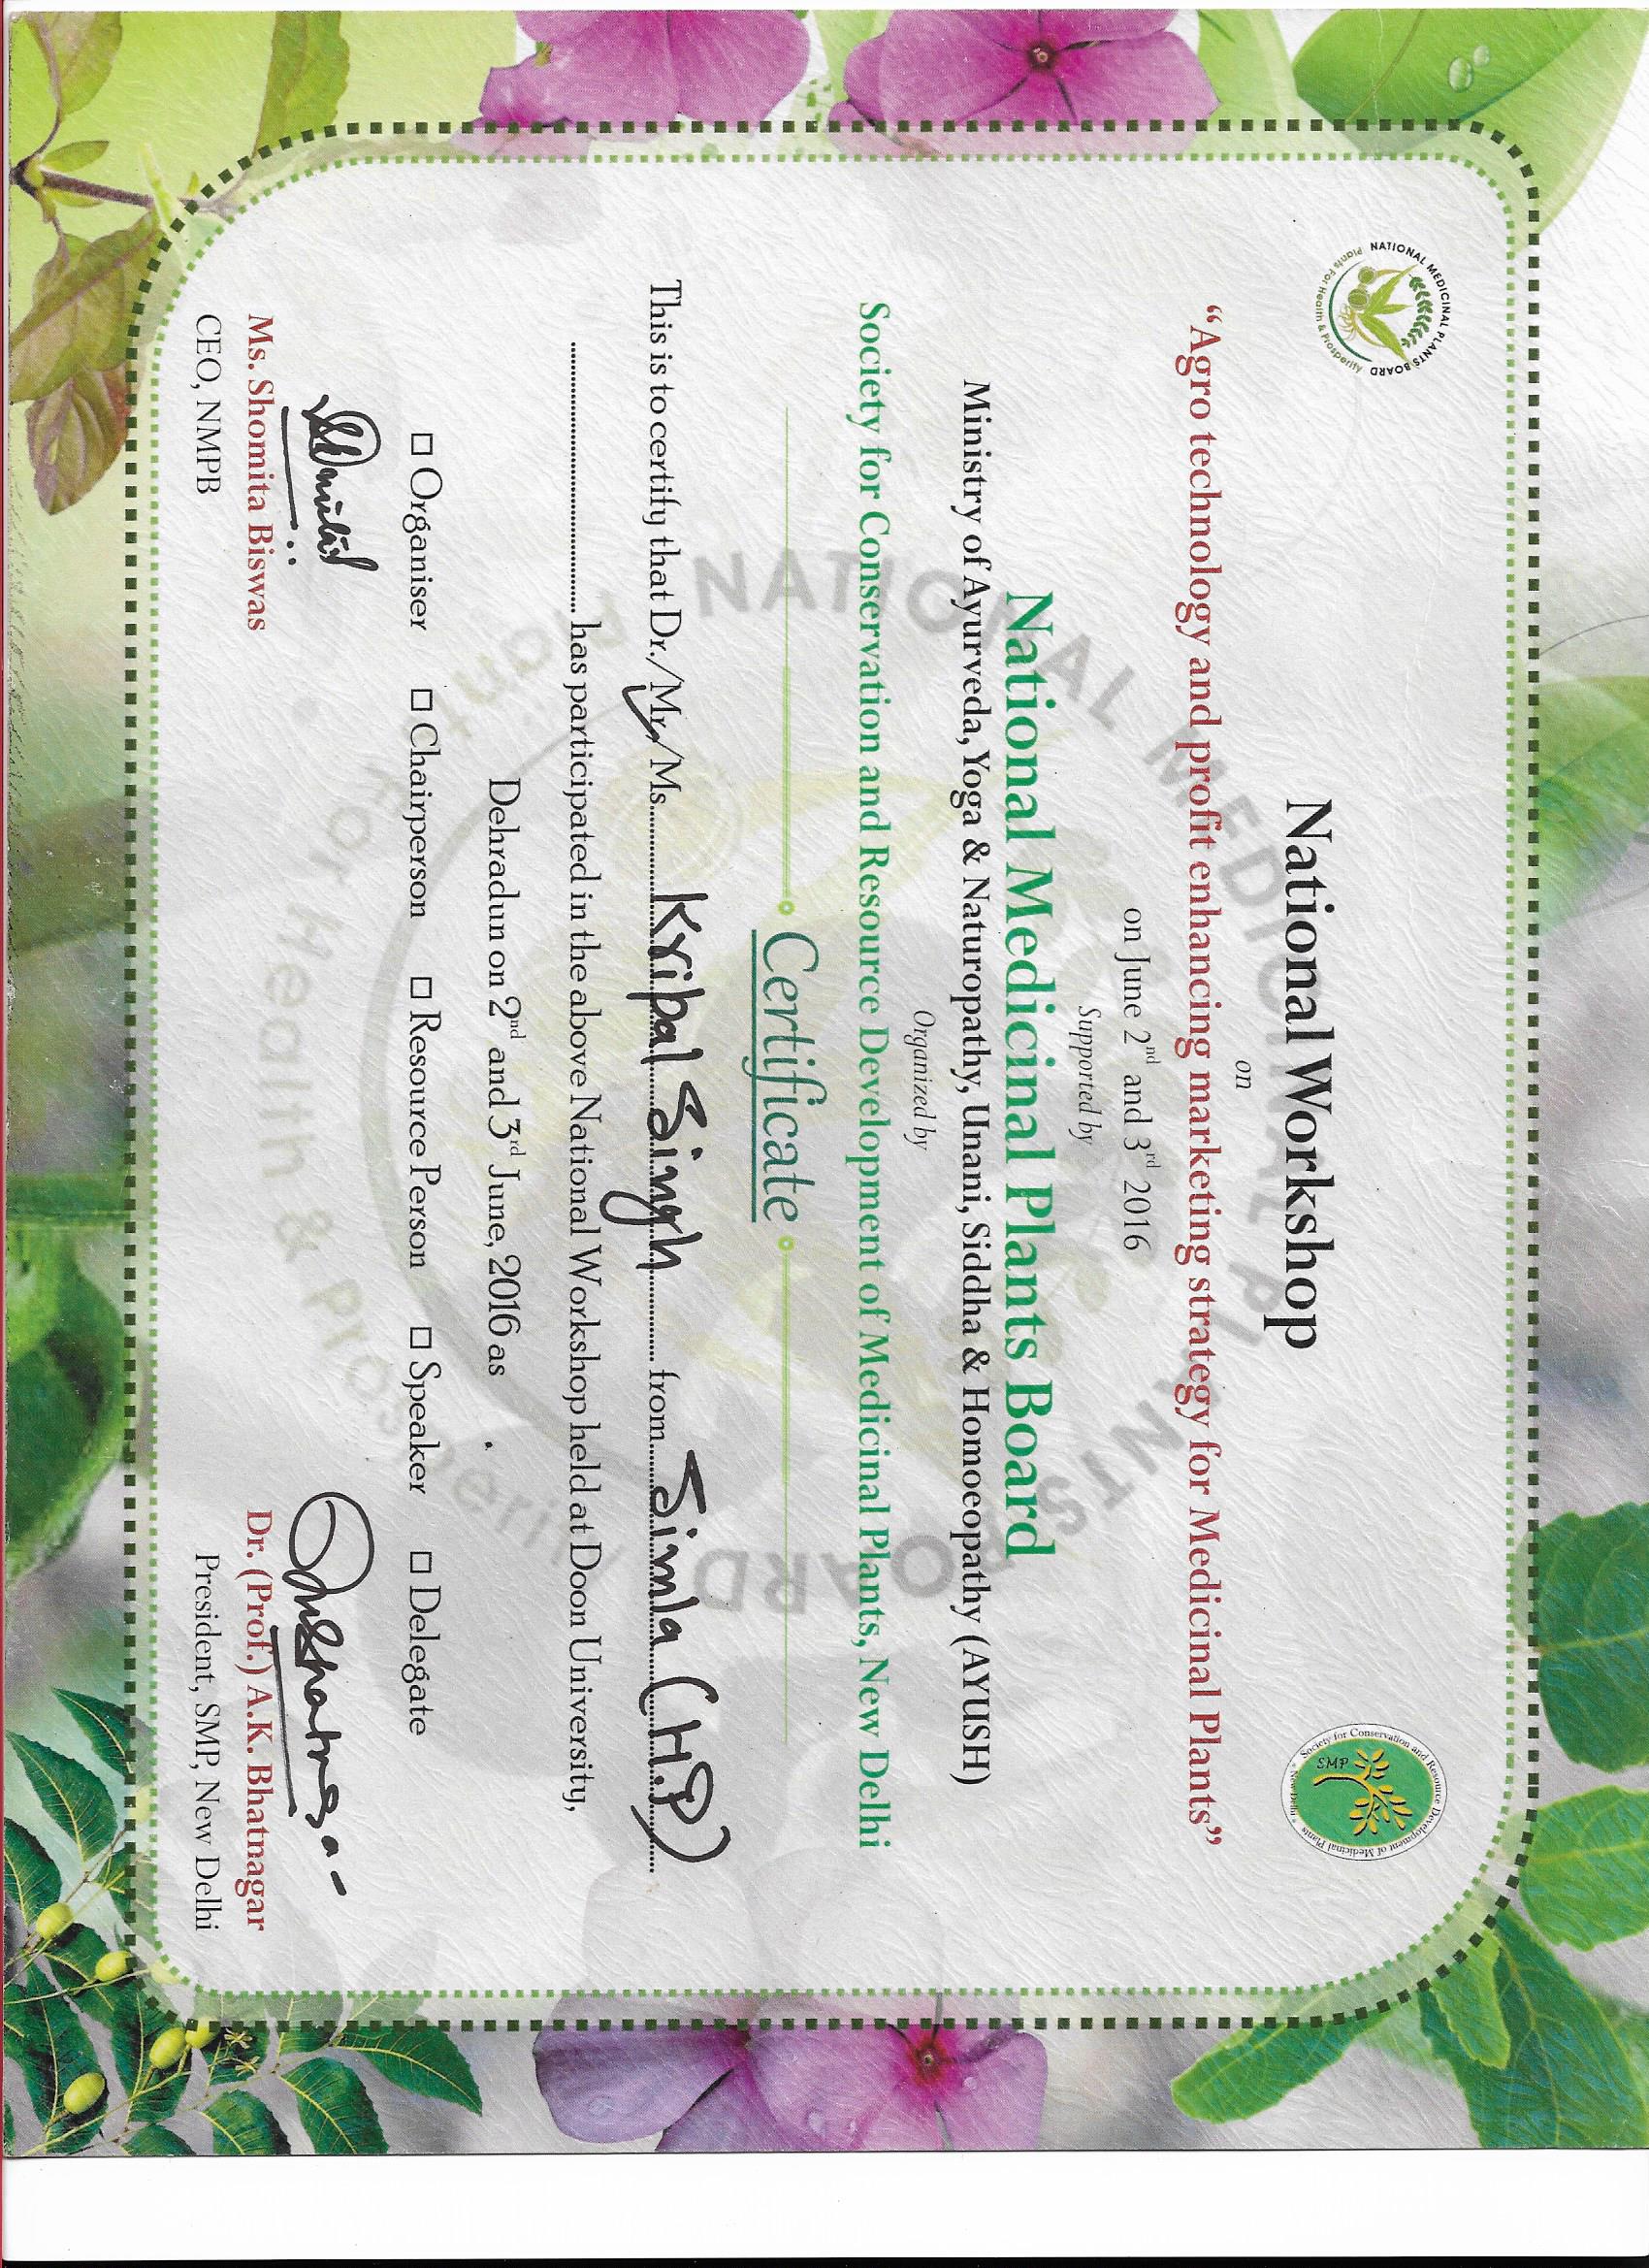 NATIONAL MEDICINAL PLANTS BOARD
Plants For Health & Prosperity
Society for Conservation and Resource Development of Medicinal Plants
SMP
* New Delhi *
National Workshop
on
“Agro technology and profit enhancing marketing strategy for Medicinal Plants”
on June 2nd and 3rd 2016
Supported by
National Medicinal Plants Board
Ministry of Ayurveda, Yoga & Naturopathy, Unani, Siddha & Homoeopathy (AYUSH)
Organized by
Society for Conservation and Resource Development of Medicinal Plants, New Delhi
Certificate
This is to certify that Dr./Mr./Ms. Kripal Singh from Simla (H.P)
has participated in the above National Workshop held at Doon University,
Dehradun on 2nd and 3rd June, 2016 as
☐ Organiser ☐ Chairperson ☐ Resource Person ☐ Speaker ☐ Delegate
Ms. Shomita Biswas Dr. (Prof.) A.K. Bhatnagar
CEO, NMPB President, SMP, New Delhi
NATIONAL MEDICINAL PLANTS BOARD
Plants For Health & Prosperity